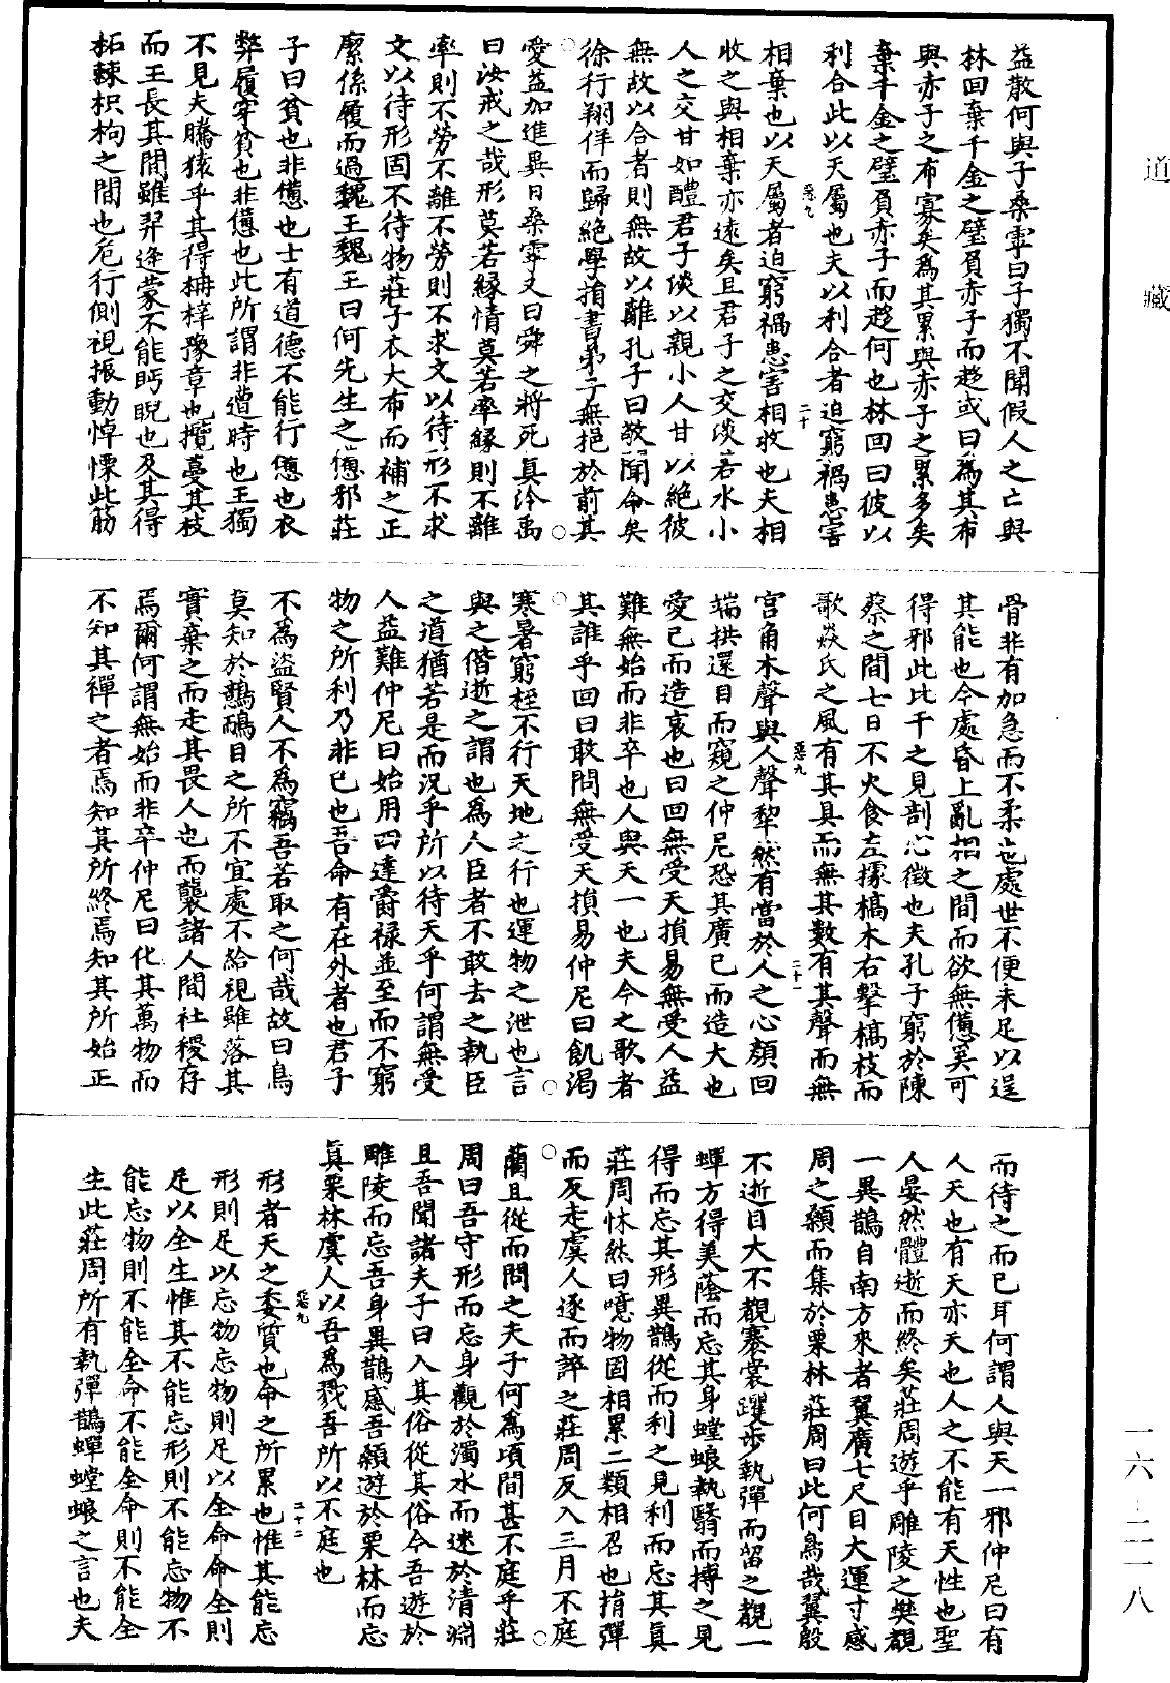 道藏
益散何與子桑雽曰子獨不聞假人之亡與
林回棄千金之璧負赤子而趍或曰為其布
與赤子之布寡矣為其累與赤子之累多矣
棄千金之璧負赤子而趍何也林回曰彼以
利合此以天屬也夫以利合者迫窮禍患害
惡九 二十
相棄也以天屬者迫窮禍患害相收也夫相
收之與相棄亦遠矣且君子之交淡若水小
人之交甘如醴君子淡以親小人甘以絕彼
無故以合者則無故以離孔子曰敬聞命矣
徐行翔佯而歸絕學捐書弟子無挹於前其
愛益加進異日桑雽又曰舜之將死真泠禹
曰汝戒之哉形莫若緣情莫若率緣則不離
率則不勞不離不勞則不求文以待形不求
文以待形固不待物莊子衣大布而補之正
緳係履而過魏王魏王曰何先生之憊邪莊
子曰貧也非憊也士有道德不能行憊也衣
弊履穿貧也非憊也此所謂非遭時也王獨
不見夫騰猿乎其得柟梓豫章也攬蔓其枝
而王長其間雖羿逄蒙不能眄睨也及其得
柘棘枳枸之間也危行側視振動悼慄此筋
骨非有加急而不柔也處世不便未足以逞
其能也今處昏上亂相之間而欲無憊奚可
得邪此比干之見剖心徵也夫孔子窮於陳
蔡之間七日不火食左據槁木右擊槁枝而
歌焱氏之風有其具而無其數有其聲而無
惡九 二十一
宮角木聲與人聲犂然有當於人之心顏回
端拱還目而窺之仲尼恐其廣己而造大也
愛己而造哀也曰回無受天損易無受人益
難無始而非卒也人與天一也夫今之歌者
其誰乎回曰敢問無受天損易仲尼曰飢渴
寒暑窮桎不行天地之行也運物之泄也言
與之偕逝之謂也為人臣者不敢去之執臣
之道猶若是而況乎所以待天乎何謂無受
人益難仲尼曰始用四達爵祿並至而不窮
物之所利乃非已也吾命有在外者也君子
不為盜賢人不為竊吾若取之何哉故曰鳥
莫知於鷾鴯目之所不宜處不給視雖落其
實棄之而走其畏人也而襲諸人間社稷存
焉爾何謂無始而非卒仲尼曰化其萬物而
不知其禪之者焉知其所終焉知其所始正
而待之而已耳何謂人與天一邪仲尼曰有
人天也有天亦天也人之不能有天性也聖
人晏然體逝而終矣莊周遊乎雕陵之樊覩
一異鵲自南方來者翼廣七尺目大運寸感
周之顙而集於栗林莊周曰此何鳥哉翼殷
不逝目大不覩褰裳躩步執彈而留之覩一
蟬方得美蔭而忘其身螳蜋執翳而搏之見
得而忘其形異鵲從而利之見利而忘其真
莊周怵然曰噫物固相累二類相召也捐彈
而反走虞人逐而誶之莊周反入三月不庭
藺且從而問之夫子何為頃間甚不庭乎莊
周曰吾守形而忘身觀於濁水而迷於清淵
且吾聞諸夫子曰入其俗從其俗今吾遊於
雕陵而忘吾身異鵲感吾顙遊於栗林而忘
真栗林虞人以吾為戮吾所以不庭也
惡九 二十二
形者天之委質也命之所累也惟其能忘
形則足以忘物忘物則足以全命命全則
足以全生惟其不能忘形則不能忘物不
能忘物則不能全命不能全命則不能全
生此莊周所有執彈鵲蟬螳蜋之言也夫
一六-二一八